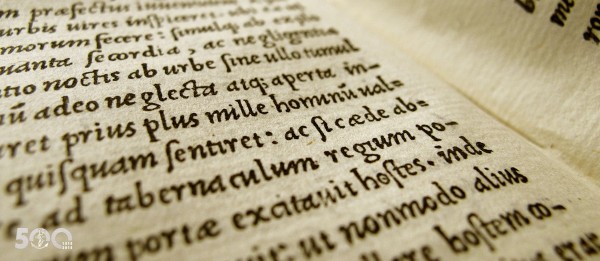 præfectus iuuenum
urbis uires inſpiceret
morum fecere: ſimulq; ab exulo
quanta ſecordia, ac negligentia
tio noctis ab urbe ſine ullo tumul
adeo neglecta atq; aperta in-
ret prius plus mille hominũ ual=
quiſquam ſentiret: ac ſi cæde ab=
ad tabernaculum regium po-
portæ excitauit hoſtes. inde
ut nonmodo alius
hoſtem co-
500